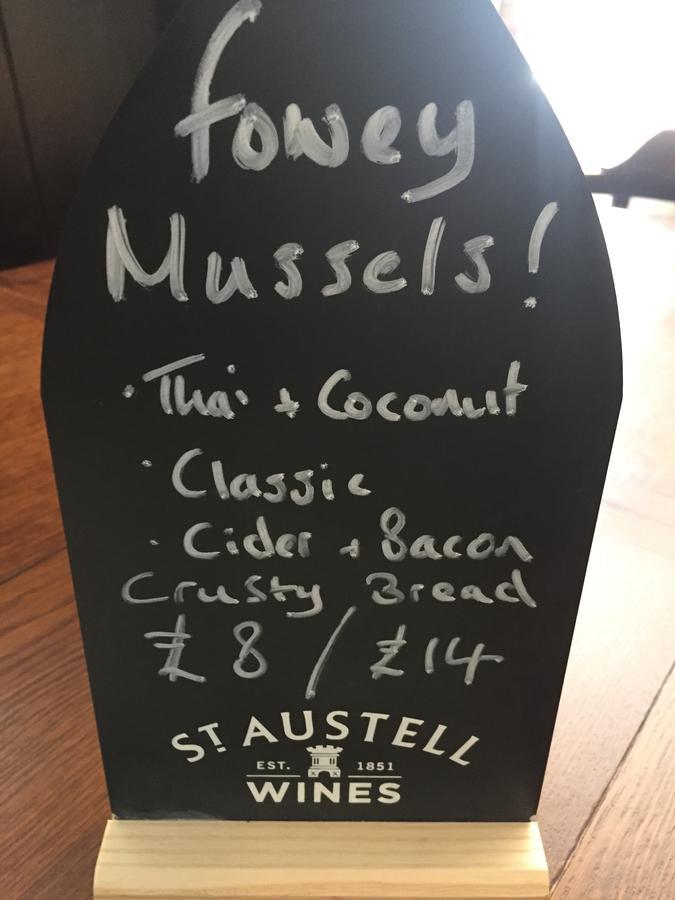 fowey
Mussels!
· Thai + Coconut
· Classic
· Cider + Bacon
Crusty Bread
£8 / £14
ST AUSTELL
EST. 1851
WINES